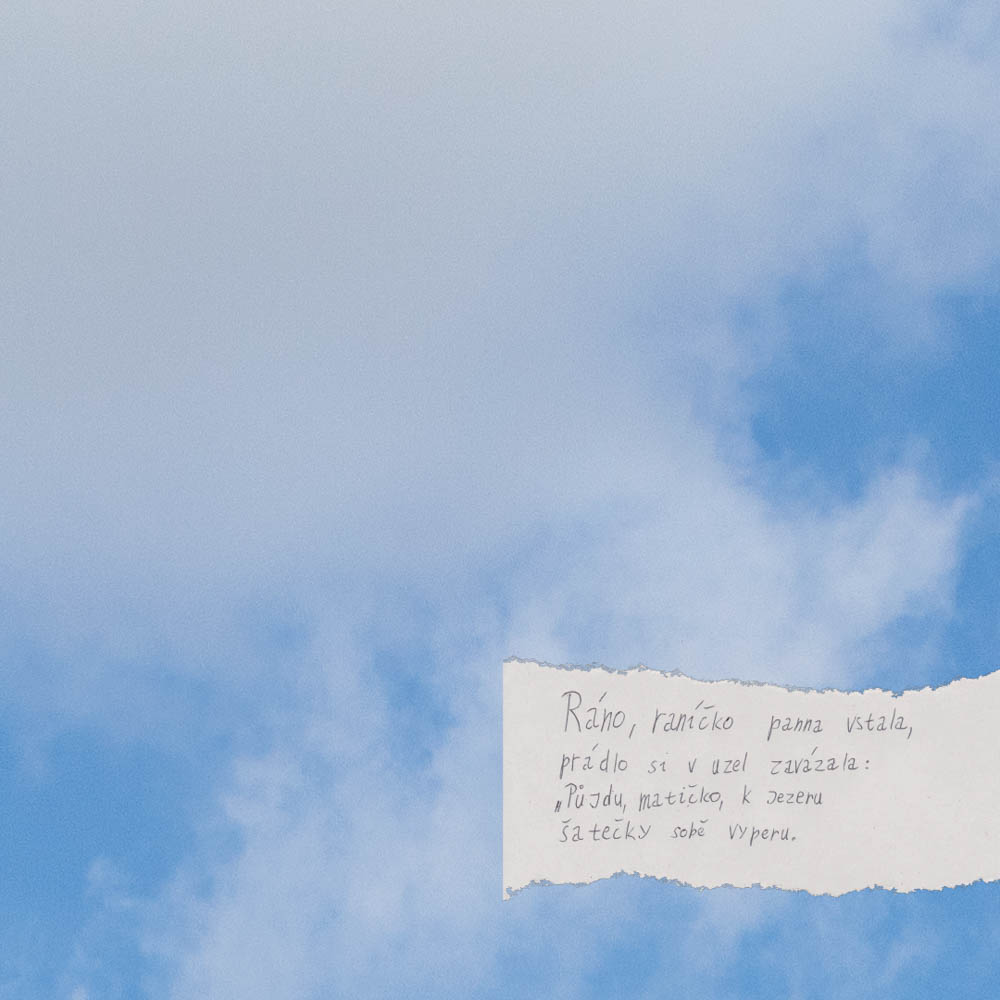 Ráno, raníčko panna vstala,
prádlo si v uzel zavázala:
„Půjdu, matičko, k jezeru
šatečky sobě vyperu.